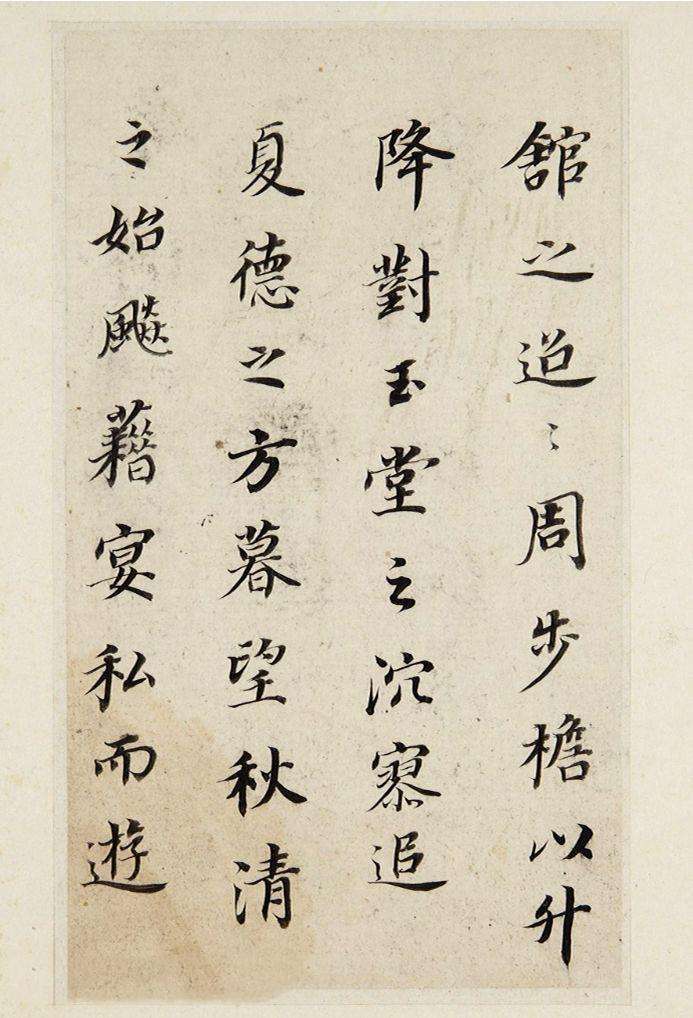 舘之迢〻周步檐以升
降對玉堂之泬寥追
夏德之方暮望秋清
之始飈藉宴私而遊